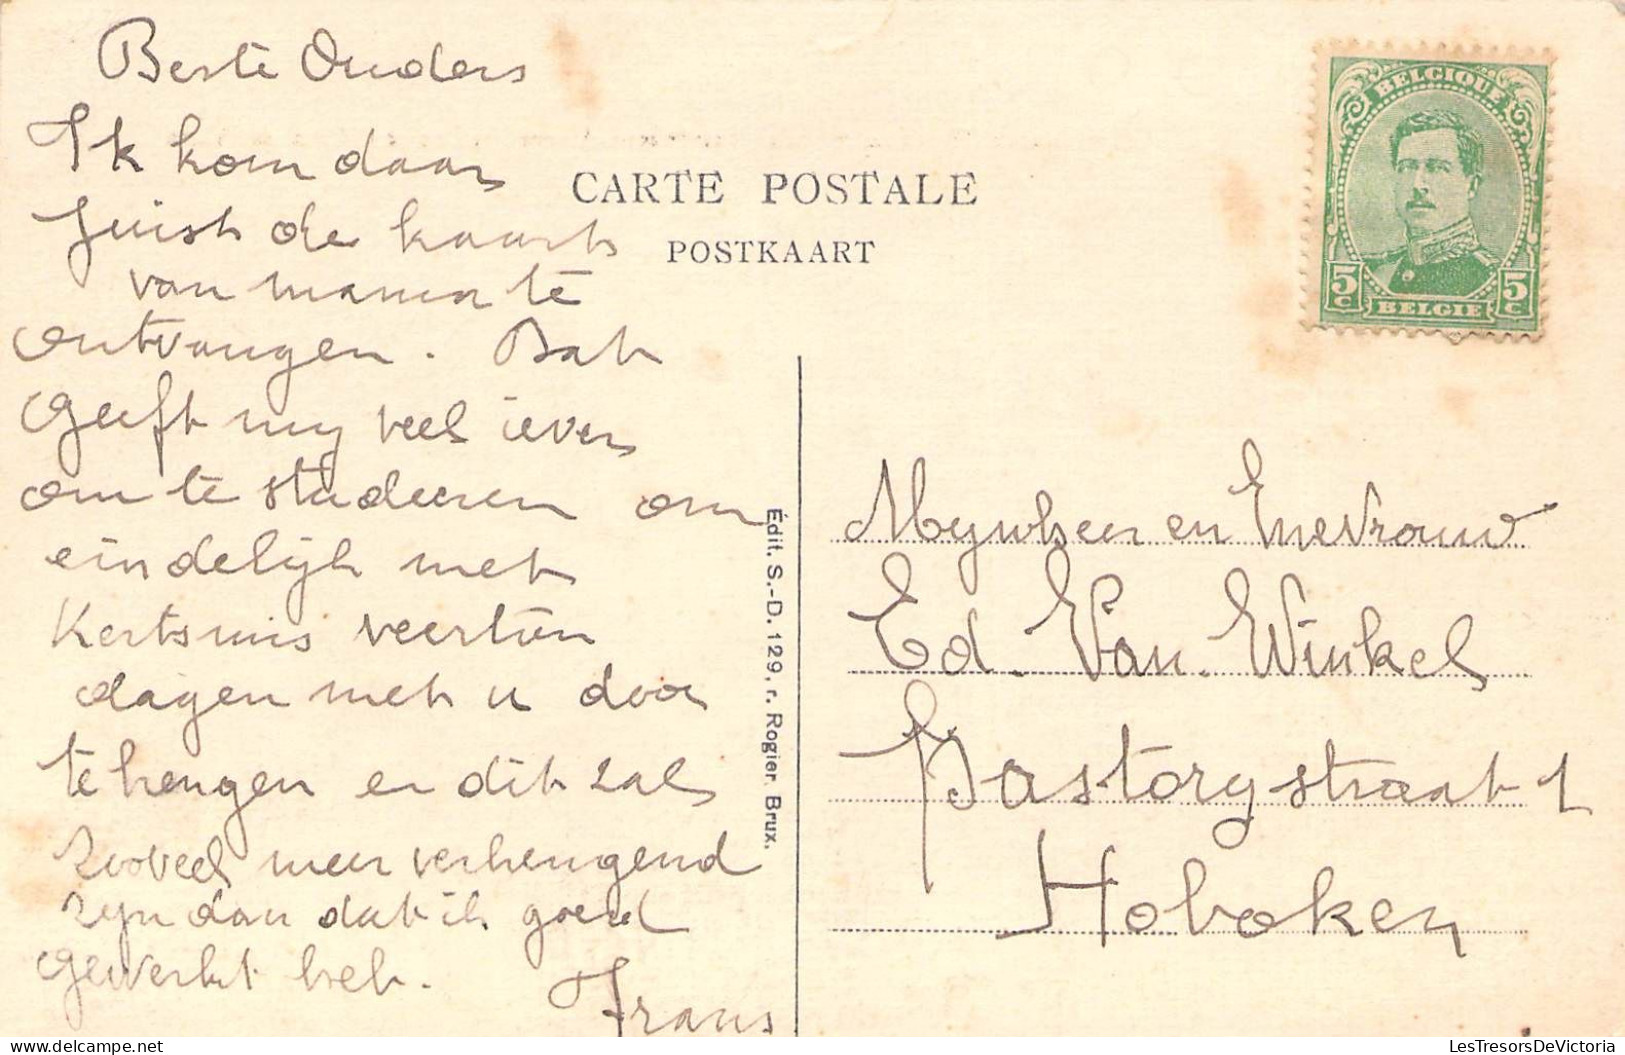 Beste Ouders
Ik kom daar
juist de kaart
van mama te
ontvangen. Dat
geeft mij veel iever
om te studeeren om
eindelijk met
Kertsmis veertien
dagen met u door
te brengen en dit zal
zooveel meer verheugend
zijn dan dat ik goed
gewerkt heb.
Frans
CARTE POSTALE
POSTKAART
Édit. S.-D. 129, r. Rogier, Brux.
BELGIQUE
5 C
5 C
BELGIE
Mynheer en Mevrouw
Ed. Van. Winkel
Pastorystraat 1
Hoboken
LesTresorsDeVictoria.com